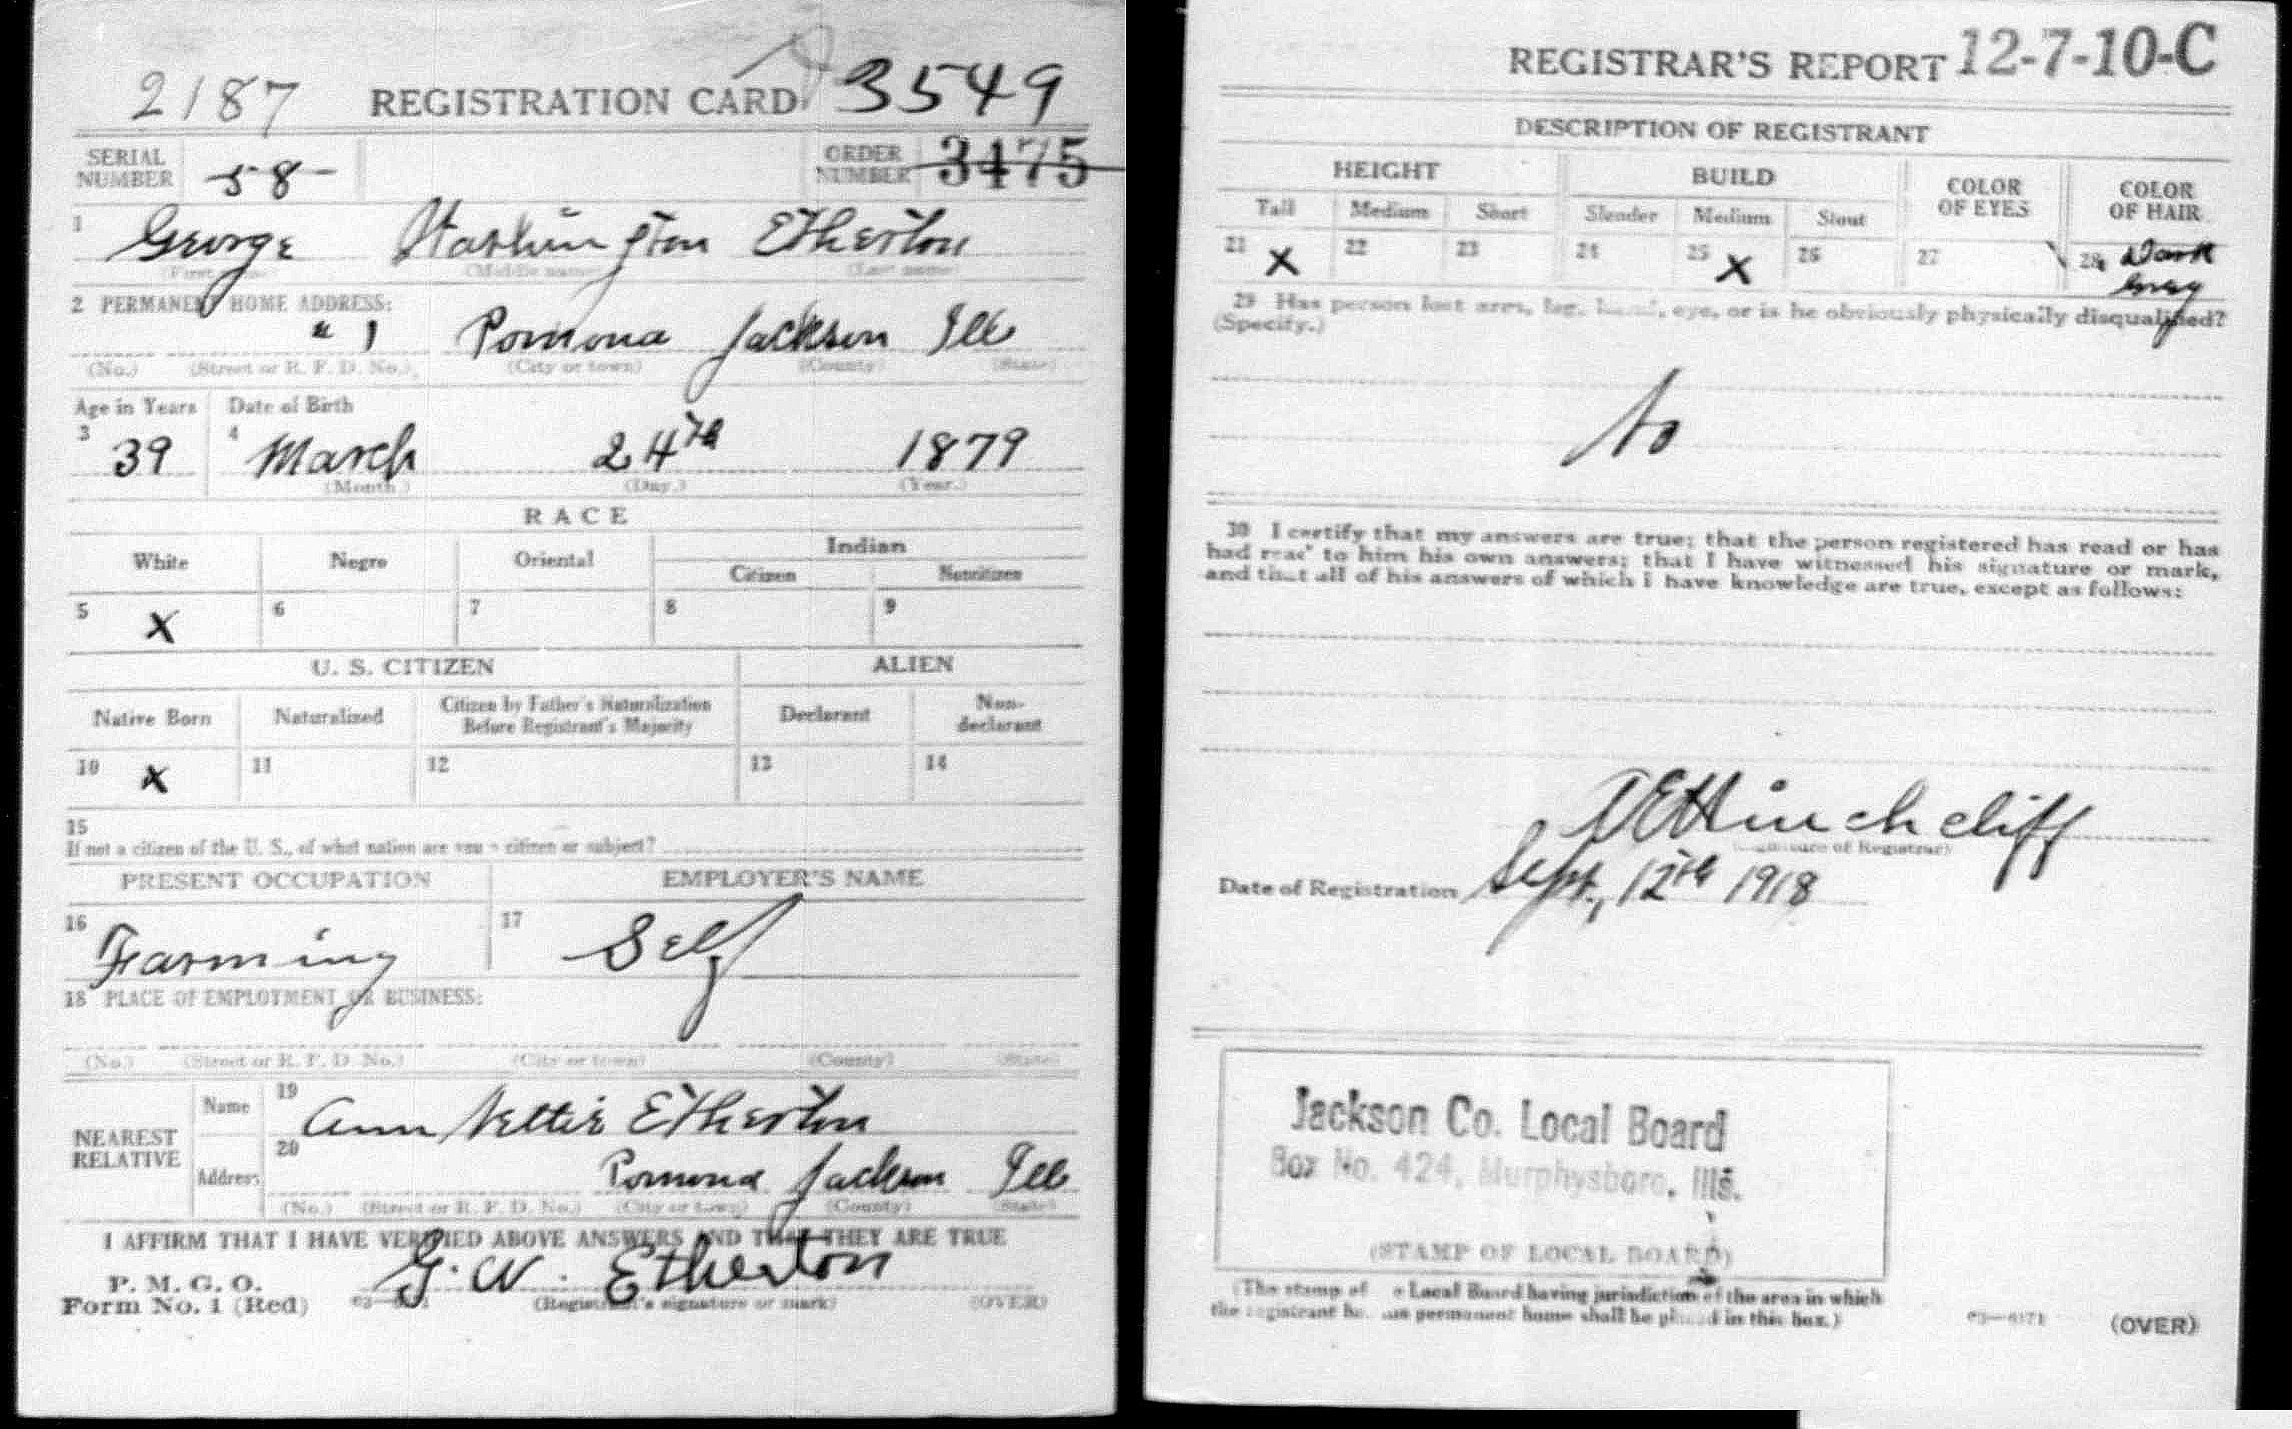 2187 REGISTRATION CARD 3549
SERIAL NUMBER 58- ORDER NUMBER 3475
1 George Washington Etherton
(First name) (Middle name) (Last name)
2 PERMANENT HOME ADDRESS:
" 1 Pomona Jackson Ill
(No.) (Street or R. F. D. No.) (City or town) (County) (State)
Age in Years Date of Birth
3 39 4 March 24th 1879
(Month.) (Day.) (Year.)
RACE
White Negro Oriental Indian
Citizen Noncitizen
5 X 6 7 8 9
U. S. CITIZEN ALIEN
Native Born Naturalized Citizen by Father's Naturalization Before Registrant's Majority Declarant Non-declarant
10 X 11 12 13 14
15
If not a citizen of the U. S., of what nation are you a citizen or subject?
PRESENT OCCUPATION EMPLOYER'S NAME
16 Farming 17 Self
18 PLACE OF EMPLOYMENT OR BUSINESS:
(No.) (Street or R. F. D. No.) (City or town) (County) (State)
NEAREST RELATIVE
Name 19 Ann Nettie Etherton
Address 20 Pomona Jackson Ill
(No.) (Street or R. F. D. No.) (City or town) (County) (State)
I AFFIRM THAT I HAVE VERIFIED ABOVE ANSWERS AND THAT THEY ARE TRUE
P. M. G. O.
Form No. 1 (Red) G. W. Etherton
(Registrant's signature or mark) (OVER)
REGISTRAR'S REPORT 12-7-10-C
DESCRIPTION OF REGISTRANT
HEIGHT BUILD COLOR OF EYES COLOR OF HAIR
Tall Medium Short Slender Medium Stout
21 X 22 23 24 25 X 26 27 28 Dark
Gray
29 Has person lost arm, leg, hand, eye, or is he obviously physically disqualified?
(Specify.)
No
30 I certify that my answers are true; that the person registered has read or has
had read to him his own answers; that I have witnessed his signature or mark,
and that all of his answers of which I have knowledge are true, except as follows:
Hinchcliff
(Signature of Registrar)
Date of Registration Sept., 12th 1918
Jackson Co. Local Board
Box No. 424, Murphysboro, Ills.
(STAMP OF LOCAL BOARD)
(The stamp of the Local Board having jurisdiction of the area in which
the registrant has his permanent home shall be placed in this box.)
03—6171 (OVER)